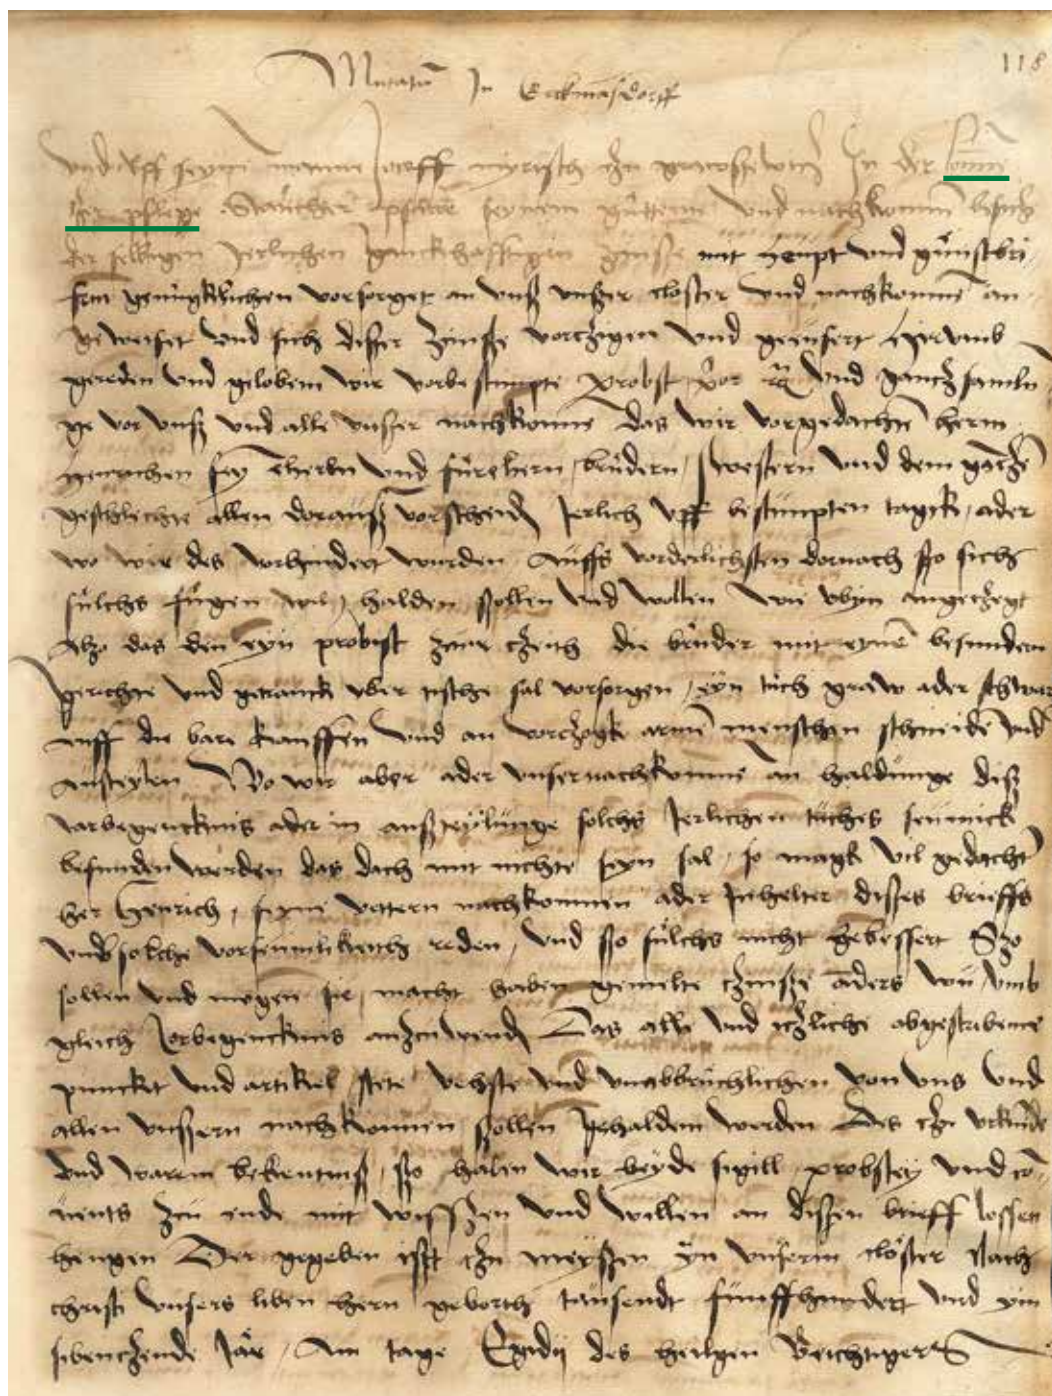 118
Mutatum In Erckmansdorff
und uff seym manne Joceff myrisch czu In der
der pflege Staucher pfarre seynem und nachkommen
der selbigen Jerlichen zinsze mit und gunstbri
fen genugklichen vorsorget an unsz unszer closter und nachkomme an
geweiset und sich diszer zinsze vorczigen und geeusert Hirumb
gereden und geloben wir vorbestimpte Probst und gancz samlu
ge vor unsz und alle unszer nachkomme das wir vorgedachten hern
Henrichen sey und fureltern, brudern, swestern und dem gancze
geschlechte allen dorausz vorscheiden Jerlich uff bestimpten tagk, ader
wo wir des vorhindert wurden auffs vorderlichsten dornach szo sichs
sulchs fugen wil, halden szollen und wollen wie obin angeczegt
Alzo das den eyn probist zcur czeith die bruder mit eyne besundern
gerichte und getranck uber tissche sal vorsorgen, eyn tuch graw ader schwar
uff die bare kauffen und an vorczogk arme menschen schneide und
austeylen Wo wir aber ader unser nachkomme an haldunge disz
Jarbegencknis ader in ausz teylunge solchs Jerlichen tuches seumick
befunden werden das dach mit nichte seyn sal, so magk vil gedacht
her Henrich, seyne vettern nachkommen ader Inhelter disses brieffs
umb solche vorseumlikeith reden, und szo sulchs nicht gebessert Szo
sollen und mogen sie, macht haben gemelte czinsze anders wu, umb
gleich Jorbegencknis anzcuwenden Das alle und iczliche abgescribene
punckt und artikel, stete vehste und unabbruchlichen von uns und
allen unszern nachkommen szollen gehalden werden Des czu urkunde
und warem bekentnisz, szo haben wir beyde sigill probstey und co
vents zcu ende mit wisszen und willen an dissen brieff lossen
hengen Der gegeben isst czu meyszen yn unserm closter Nach
christi unsers liben hern geborth tausendt funffhundert und ym
sibenczende Jar, Am tage Egidij des heilgen Beichtigers